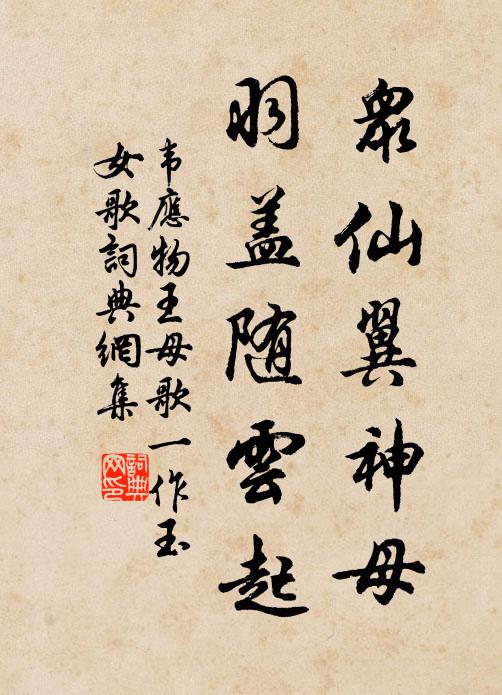 眾仙翼神母
羽盖随雲起
韦應物王母歌一作玉
女歌詞典網集
詞典网印